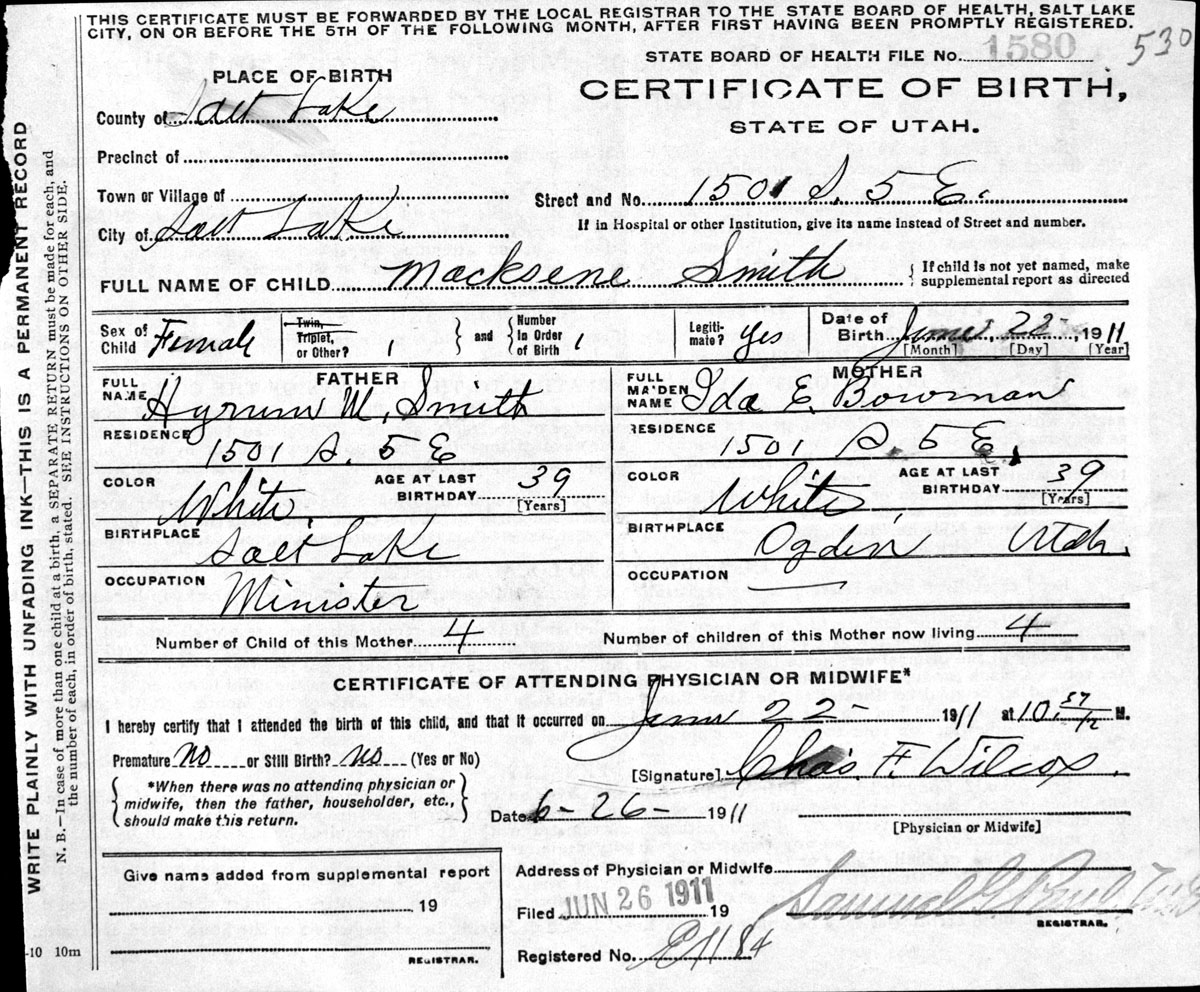 THIS CERTIFICATE MUST BE FORWARDED BY THE LOCAL REGISTRAR TO THE STATE BOARD OF HEALTH, SALT LAKE
CITY, ON OR BEFORE THE 5TH OF THE FOLLOWING MONTH, AFTER FIRST HAVING BEEN PROMPTLY REGISTERED.
STATE BOARD OF HEALTH FILE No. 1580 530
PLACE OF BIRTH
CERTIFICATE OF BIRTH,
County of Salt Lake
STATE OF UTAH.
Precinct of
Town or Village of
Street and No. 1501 S. 5 E.
City of Salt Lake
If in Hospital or other Institution, give its name instead of Street and number.
FULL NAME OF CHILD Macksene Smith
If child is not yet named, make
supplemental report as directed
Sex of Child Female
Twin, Triplet, or Other? 1
and
Number In Order of Birth 1
Legiti-mate? Yes
Date of Birth June 22 1911
[Month] [Day] [Year]
FATHER
MOTHER
FULL NAME Hyrum M. Smith
FULL MAIDEN NAME Ida E. Bowman
RESIDENCE
1501 S. 5 E
RESIDENCE
1501 S. 5 E.
COLOR White AGE AT LAST BIRTHDAY 39 [Years]
COLOR White AGE AT LAST BIRTHDAY 39 [Years]
BIRTHPLACE Salt Lake
BIRTHPLACE Ogden Utah.
OCCUPATION Minister
OCCUPATION
Number of Child of this Mother 4
Number of children of this Mother now living 4
CERTIFICATE OF ATTENDING PHYSICIAN OR MIDWIFE*
I hereby certify that I attended the birth of this child, and that it occurred on June 22- 1911 at 10 57 M.
Premature No or Still Birth? No (Yes or No)
[Signature] Chas. F. Wilcox.
*When there was no attending physician or
midwife, then the father, householder, etc.,
should make this return.
Date 6-26- 1911
[Physician or Midwife]
Give name added from supplemental report
19
REGISTRAR.
Address of Physician or Midwife
Filed JUN 26 1911 19
Samuel G. Paul
REGISTRAR.
Registered No.
WRITE PLAINLY WITH UNFADING INK—THIS IS A PERMANENT RECORD
N. B.—In case of more than one child at a birth, a SEPARATE RETURN must be made for each, and
the number of each, in order of birth, stated. SEE INSTRUCTIONS ON OTHER SIDE.
-10 10m